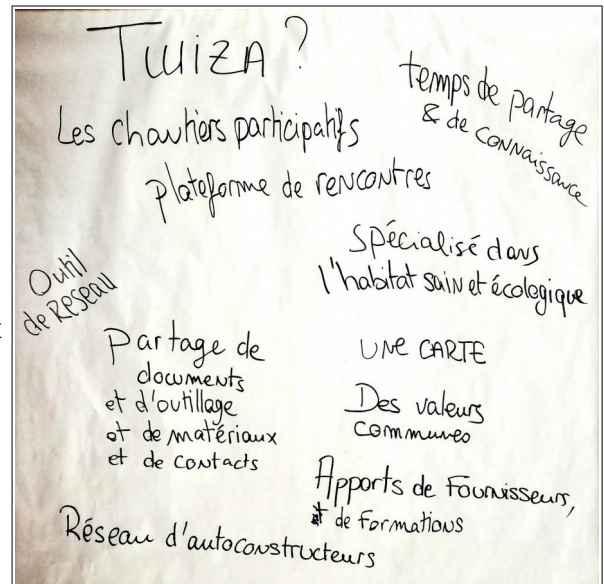 TWIZA ?
temps de partage
& de connaissance
Les chantiers participatifs
plateforme de rencontres
Spécialisé dans
l'habitat sain et écologique
Outil
de Réseau
Partage de
documents
et d'outillage
et de matériaux
et de contacts
UNE CARTE
Des valeurs
communes
Apports de Fournisseurs,
et de Formations
Réseau d'autoconstructeurs